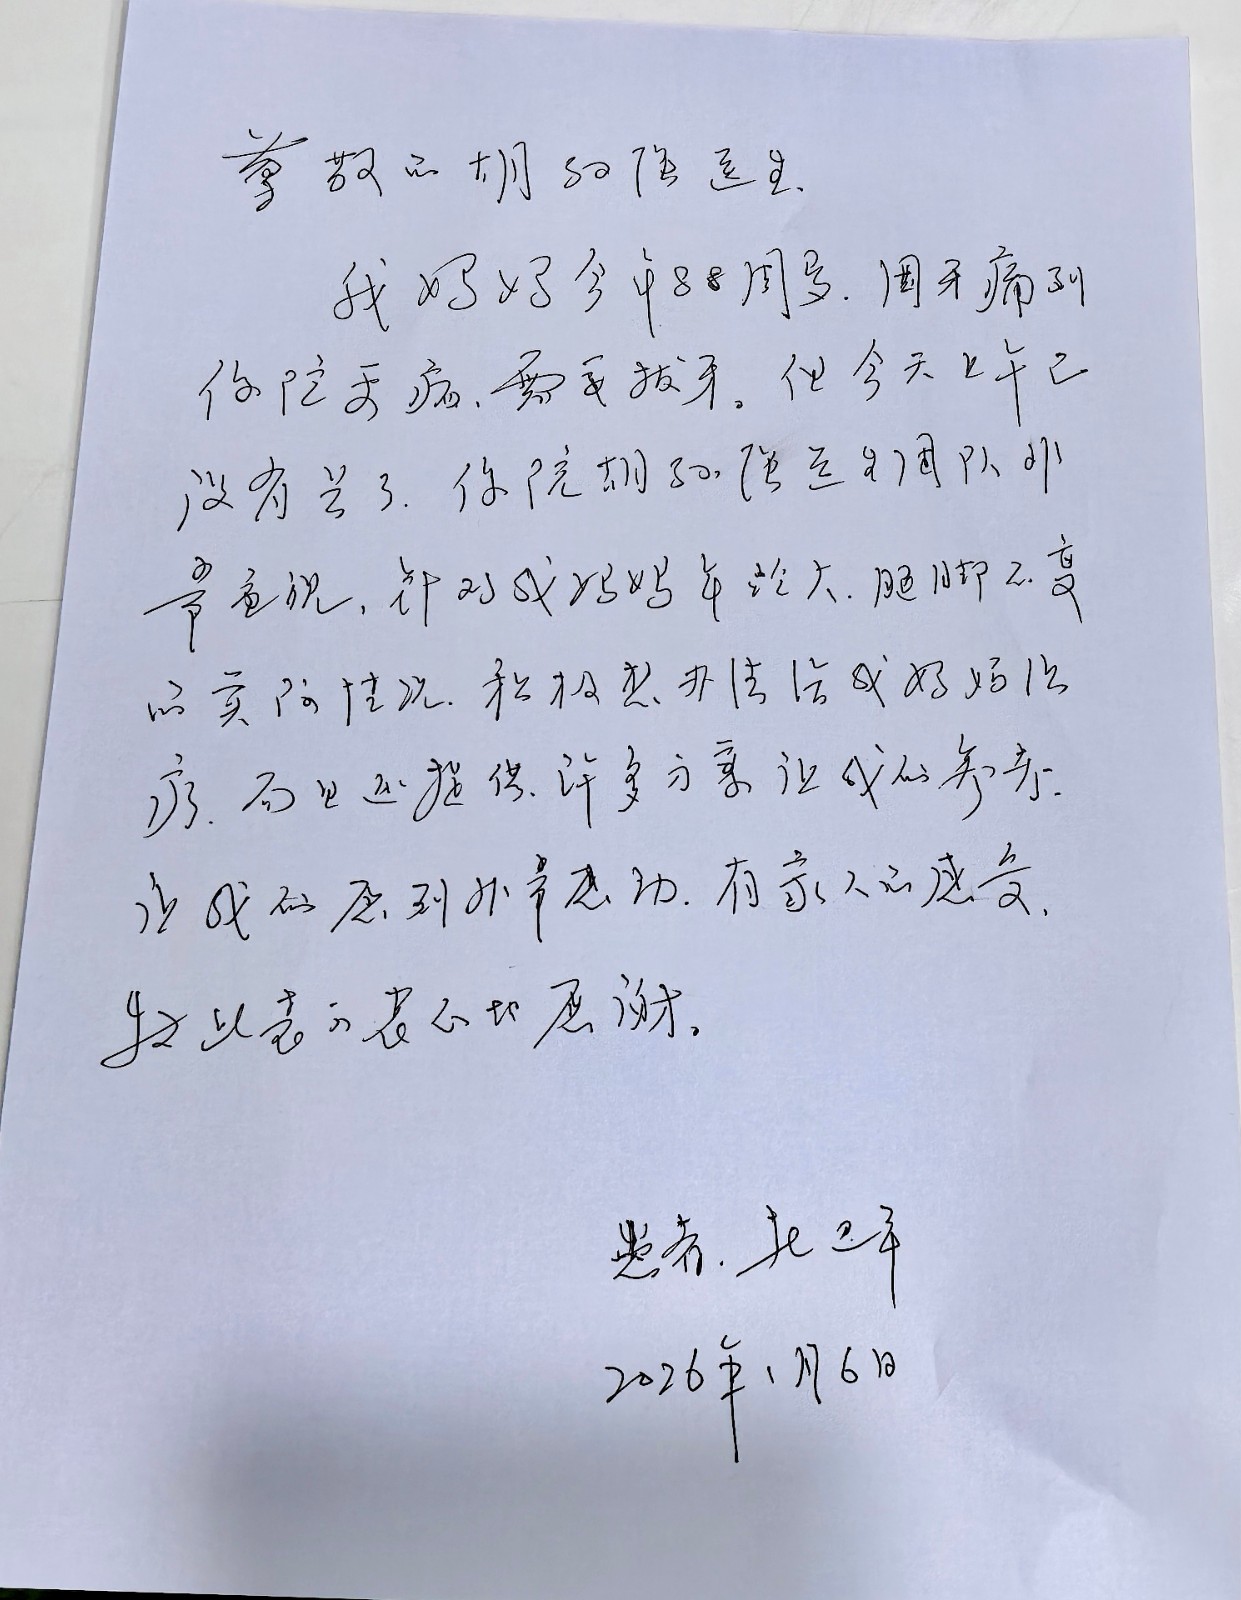 尊敬的胡 强医生.
我妈妈今年88周岁.因牙痛到
你院看病、需要拔牙。但今天上午已
没有号了.你院胡 强医生团队非
常重视,针对我妈妈年龄大.腿脚不变
的实际情况.积极想办法给我妈妈治
病.而且还提供许多方案让我们参考.
让我们感到非常感动.有家人的感受.
特此表示衷心地感谢。
患者.
2026年1月6日